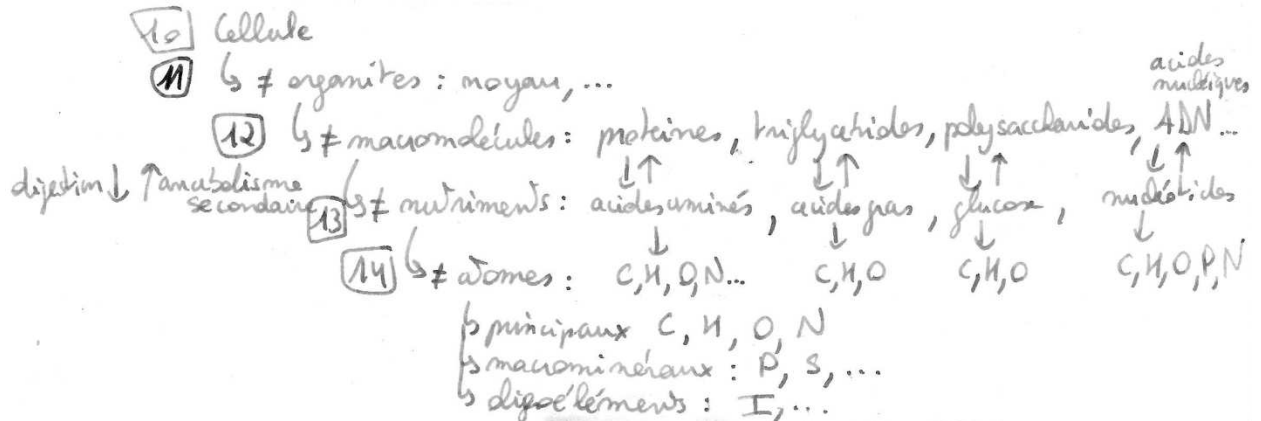 10 Cellule
11 ↳ ≠ organites : noyau, ...
acides nucléiques
12 ↳ ≠ macromolécules : protéines, triglycérides, polysaccharides, ADN...
digestion ↓ ↑ anabolisme secondaire
13 ↳ ≠ nutriments : acides aminés, acides gras, glucose, nucléotides
14 ↳ ≠ atomes : C,H,O,N... C,H,O C,H,O C,H,O,P,N
↳ principaux C, H, O, N
↳ macrominéraux : P, S, ...
↳ oligoéléments : I, ...